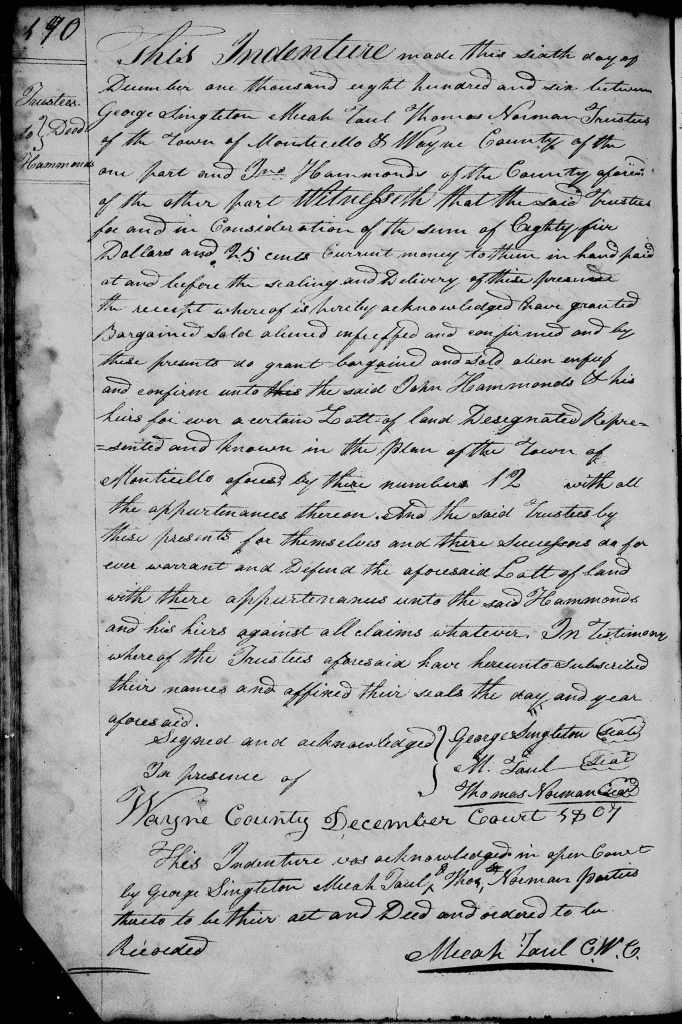 190
Trustees
to } Deed
Hammonds
This Indenture made this sixth day of
December one thousand eight hundred and six between
George Singleton Micah Taul Thomas Norman Trustees
of the Town of Monticello & Wayne County of the
one part and Jno Hammonds of the County aforesd
of the other part Witnesseth that the said Trustees
for and in Consideration of the sum of Eighty five
Dollars and 25 cents Current money to them in hand paid
at and before the sealing and Delivery of these presents
the receipt whereof is hereby acknowledged have granted
Bargained sold aliened enfeoffed and confirmed and by
these presents do grant bargained and sold alien enfeof
and confirm unto this the said John Hammonds & his
heirs for ever a certain Lott of land Designated Repre=
=sented and known in the Plan of the Town of
Monticello aforesd by there numbers 12 with all
the appurtenances thereon. And the said Trustees by
these presents for themselves and there successors do for
ever warrant and Defend the aforesaid Lott of Land
with there appurtenances unto the said Hammonds
and his heirs against all claims whatever. In Testimony
whereof the Trustees aforesaid have hereunto subscribed
their names and affixed their seals the day and year
aforesaid.
Signed and acknowledged } George Singleton Seal
In presence of M. Taul Seal
Thomas Norman Seal
Wayne County December Court 1807
This Indenture was acknowledged in open Court
by George Singleton Micah Taul & Thos Norman parties
thereto to be their act and Deed and ordered to be
Recorded
Micah Taul C.W.C.